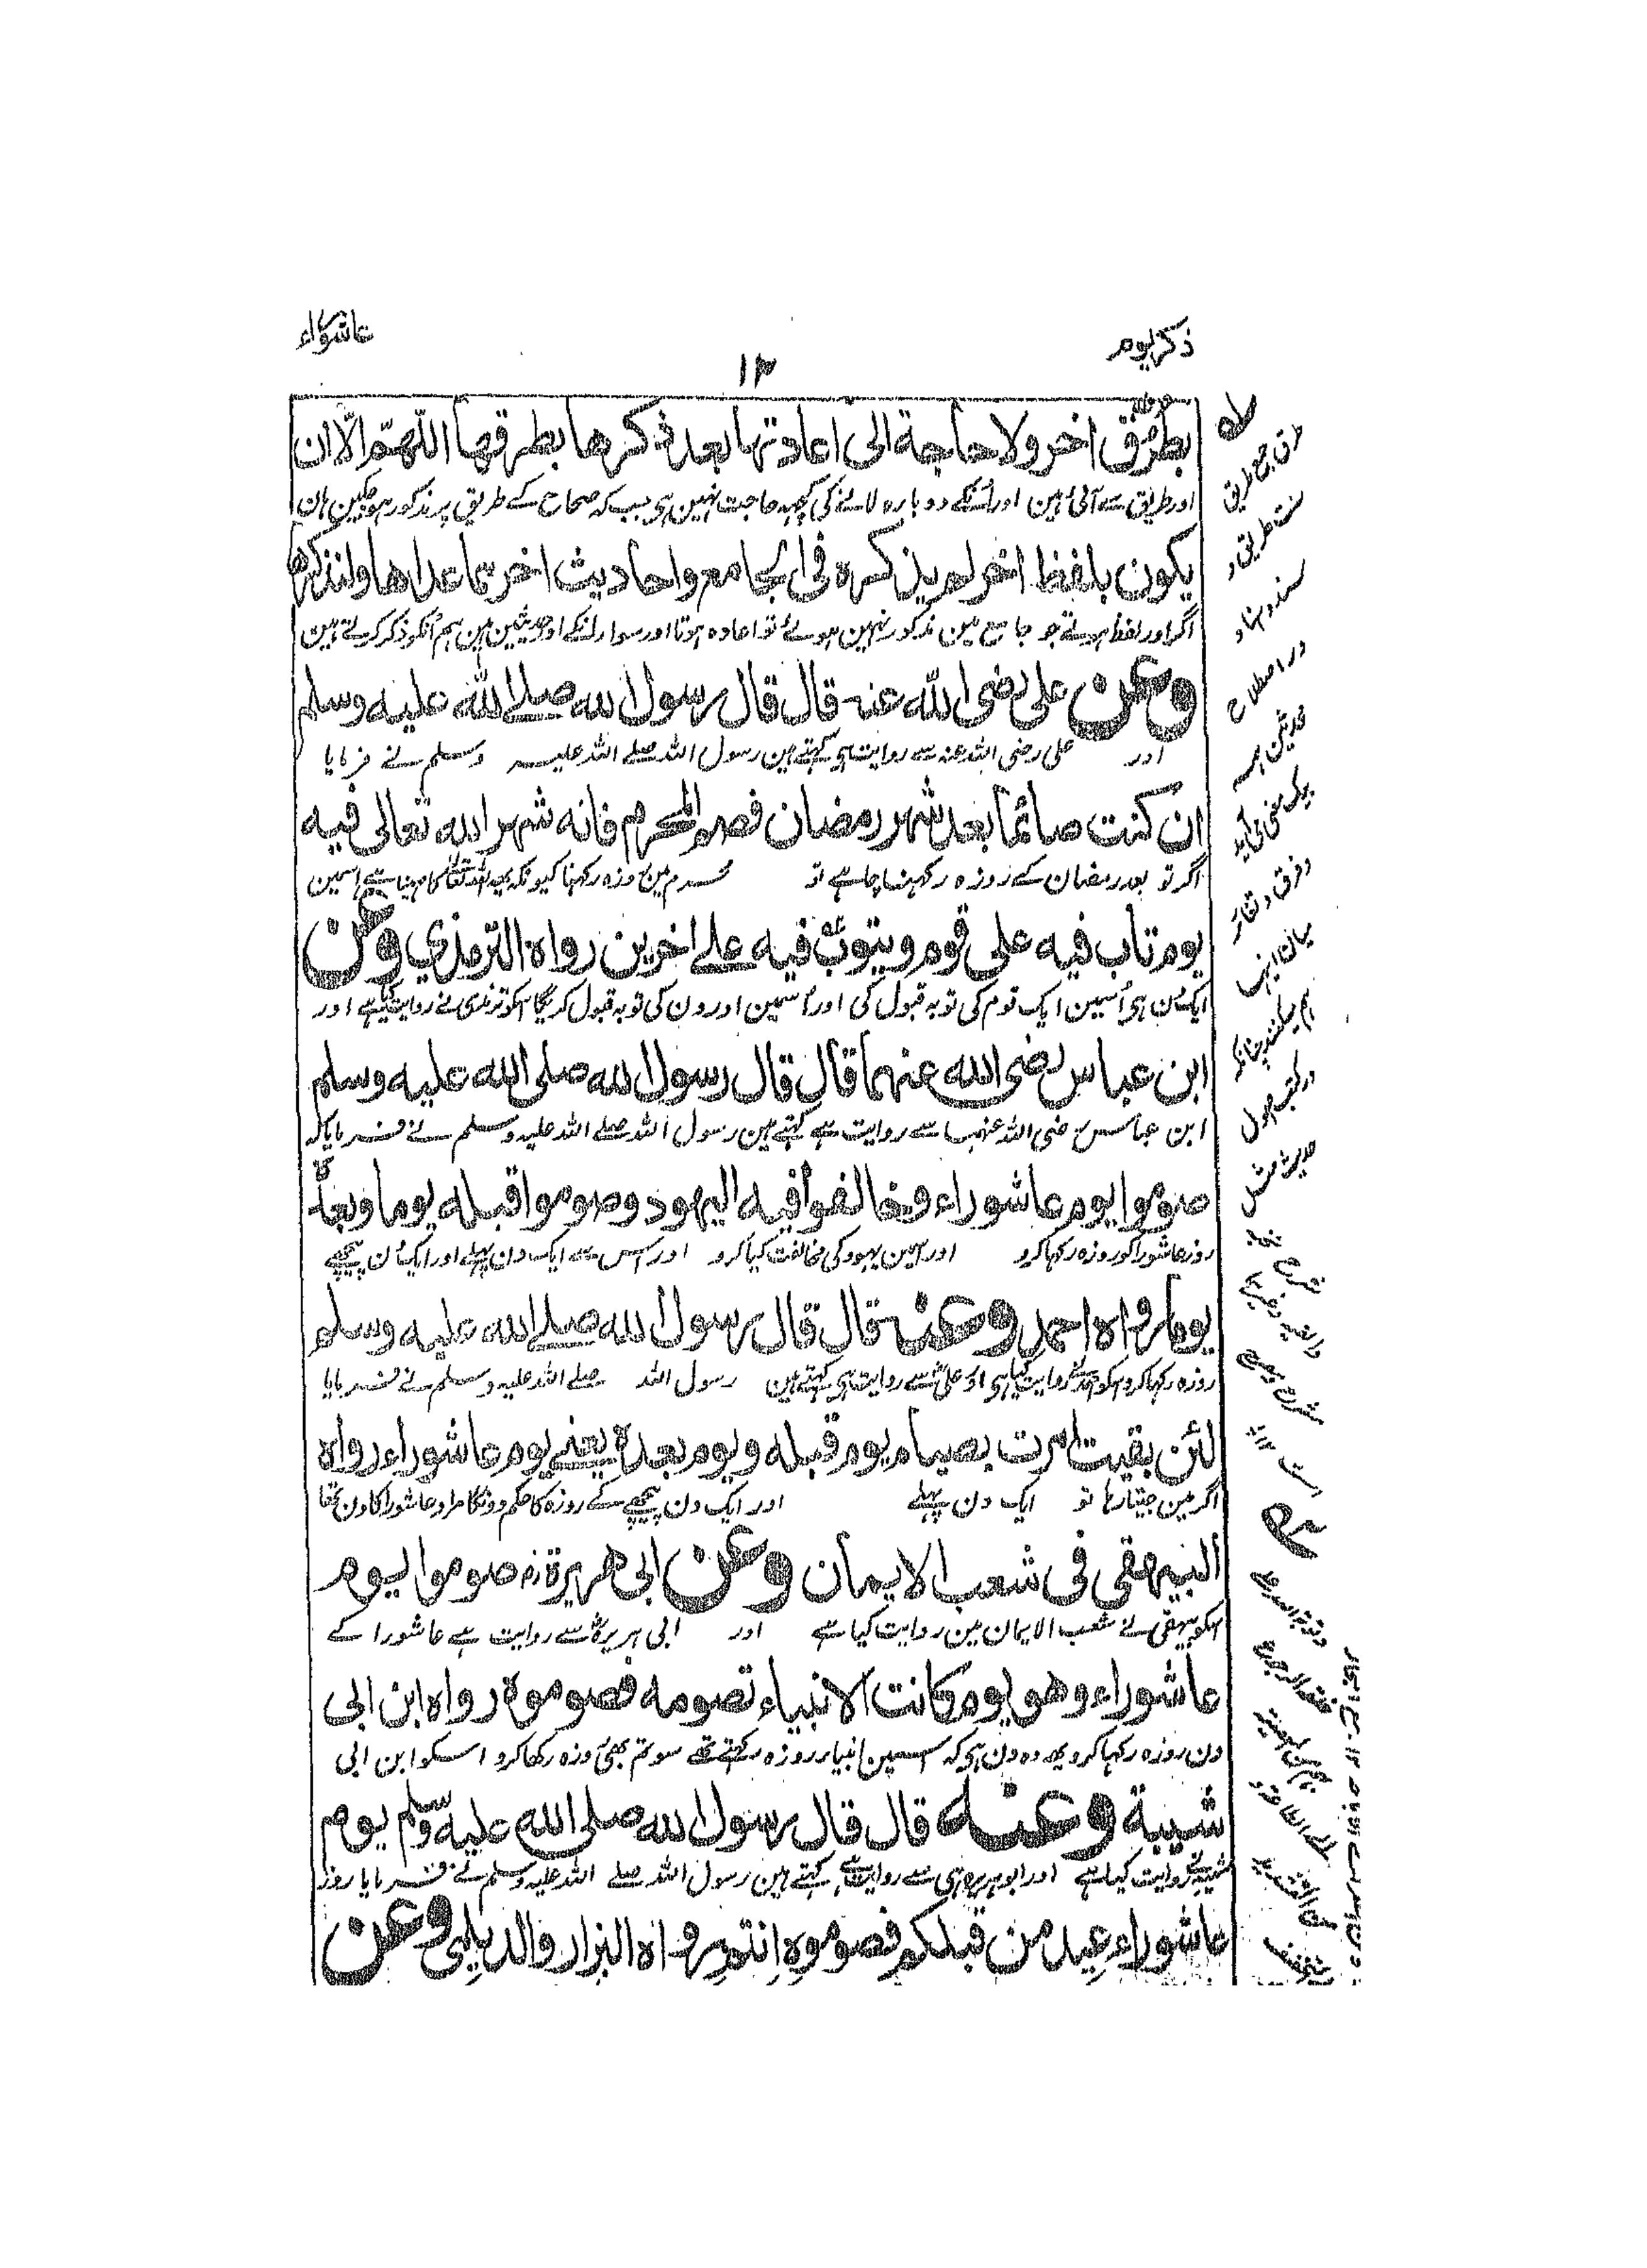 ذكر يوم
عاشوراء
۱۳
بطرق اخر ولا حاجة الى اعادتها بعد ذكرها بطرقها اللهمّ الّا ان
اور طریق سے آئی ہین اور اُنکے دوبارہ لانے کی کچہہ حاجت نہین ہی سبب کہ صحاح کے طریق پر مذکور ہو چکین ہان
يكون بلفظ اخر لم يذكره فى الجامع واحاديث اخر مما عداها ولنذكرها
اگر اور لفظ ہوتے جو جامع مین مذکور نہین ہوئے تو اعادہ ہوتا اور سوا رانکے اور حدیثین ہین ہم اُنکو ذکر کرتے ہین
وعن على رضى الله عنه قال قال رسول الله صلى الله عليه وسلم
اور علی رضی اللہ عنہ سے روایت ہی کہتے ہین رسول اللہ صلے اللہ علیہ وسلم نے فرمایا
ان كنت صائما بعد شهر رمضان فصم المحرم فانه شهر الله تعالى فيه
اگر تو بعد رمضان کے روزہ رکہنا چاہے تو محرم مین روزہ رکہنا کیونکہ یہ اللہ تعالے کا مہینا ہے اسمین
يوم تاب فيه على قوم ويتوب فيه على اخرين رواه الترمذي وعن
ایکدن ہی اُسمین ایک قوم کی توبہ قبول کی اور اُسمین اورون کی توبہ قبول کریگا اسکو ترمذی نے روایت کیا ہے اور
ابن عباس رضى الله عنهما قال قال رسول الله صلى الله عليه وسلم
ابن عباس رضی اللہ عنہما سے روایت ہے کہتے ہین رسول اللہ صلے اللہ علیہ وسلم نے فرمایا کہ
صوموا يوم عاشوراء وخالفوا فيه اليهود وصوموا قبله يوما وبعده
روز عاشورا کو روزہ رکہا کرو اور اسمین یہود کی مخالفت کیا کرو اور اس سے ایک دن پہلے اور ایک دن پیچہے
يوما رواه احمد وعنه قال قال رسول الله صلى الله عليه وسلم
روزہ رکہا کرو اسکو احمد نے روایت کیا ہی اور علی سے روایت ہی کہتے ہین رسول اللہ صلے اللہ علیہ وسلم نے فرمایا
لئن بقيت امرت بصيام يوم قبله ويوم بعده يعنى يوم عاشوراء رواه
اگر مین جیتا رہا تو ایک دن پہلے اور ایک دن پیچہے کے روزہ کا حکم دونگا مراد عاشورا کا دن تھا
البيهقى فى شعب الايمان وعن ابى هريرة رض صوموا يوم
اسکو بیہقی نے شعب الایمان مین روایت کیا ہے اور ابی ہریرہ سے روایت ہے عاشورا کے
عاشوراء وهو يوم كانت الانبياء تصومه فصوموه رواه ابن ابى
دن روزہ رکہا کرو یہہ وہ دن ہی کہ اسمین انبیاء روزہ رکہتے تھے سو تم بھی روزہ رکھا کرو اسکو ابن ابی
شيبة وعنه قال قال رسول الله صلى الله عليه وسلم يوم
شیبہ نے روایت کیا ہے اور ابو ہریرہ ہی سے روایت ہے کہتے ہین رسول اللہ صلے اللہ علیہ وسلم نے فرمایا روز
عاشوراء عيد من قبلكم فصوموه انتم رواه البزار والديلمى وعن
طرق جمع طریق
ست طریق و
سند و اسناد
در اصطلاح
محدثین ہمہ
بیک معنی می آید
و فرق و تغایر
میان اینہا
ہم میکنند چنانکہ
در کتب اصول
حدیث مثل